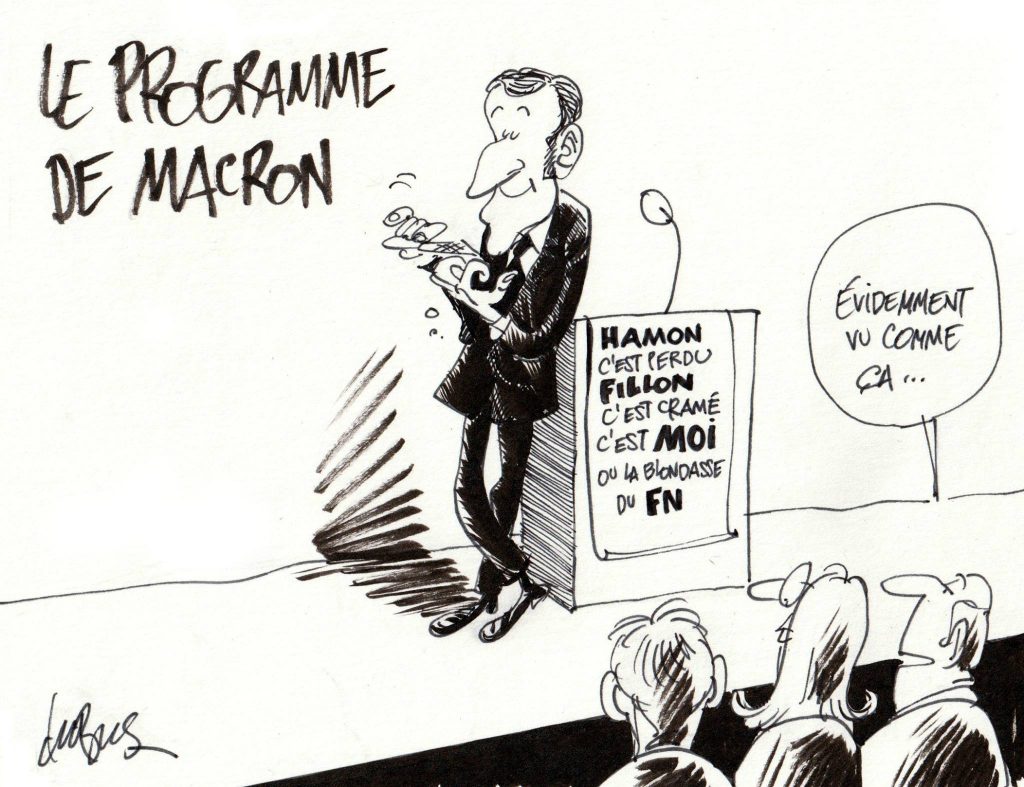 LE PROGRAMME
DE MACRON
HAMON
C'EST PERDU
FILLON
C'EST CRAMÉ
C'EST MOI
OU LA BLONDASSE
DU FN
ÉVIDEMMENT
VU COMME
ÇA...